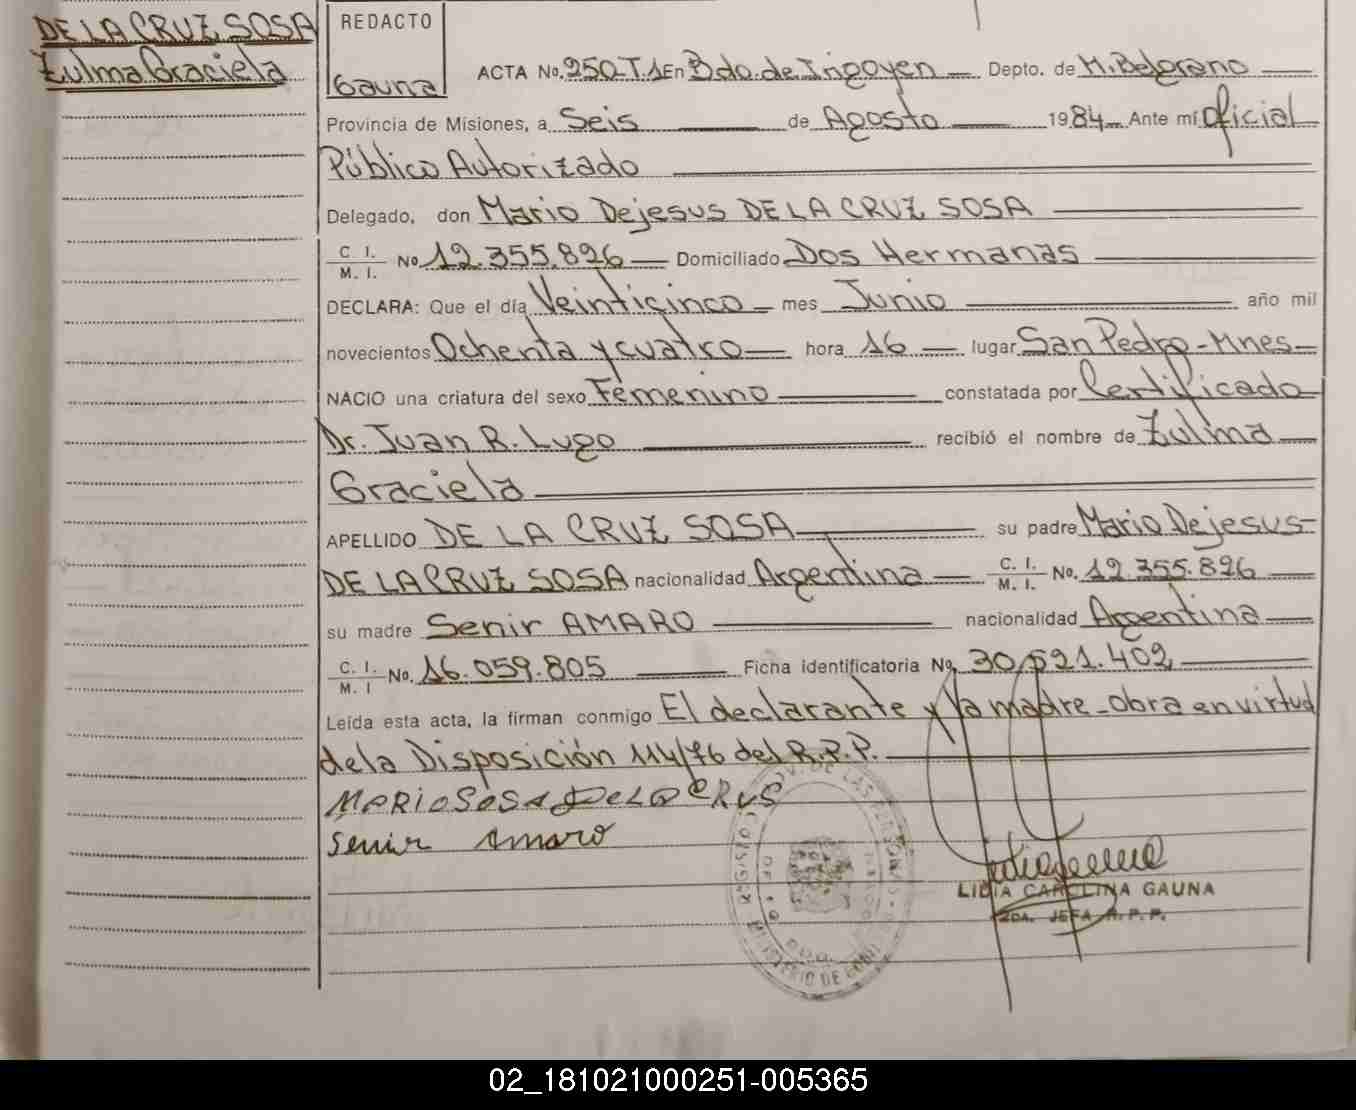 DE LA CRUZ SOSA
Zulma Graciela
REDACTO
Gauna
ACTA No. 250-T.1 En Bdo. de Irigoyen Depto. de M. Belgrano
Provincia de Misiones, a Seis de Agosto 1984 Ante mí Oficial
Público Autorizado
Delegado, don Mario Dejesus DE LA CRUZ SOSA
C. I.
M. I. No 12.355.826 Domiciliado Dos Hermanas
DECLARA: Que el día Veinticinco mes Junio año mil
novecientos Ochenta y cuatro hora 16 lugar San Pedro-Mnes
NACIO una criatura del sexo Femenino constatada por Certificado
Dr. Juan R. Lugo recibió el nombre de Zulma
Graciela
APELLIDO DE LA CRUZ SOSA su padre Mario Dejesus
DE LA CRUZ SOSA nacionalidad Argentina C. I.
M. I. No. 12.355.826
su madre Senir AMARO nacionalidad Argentina
C. I.
M. I No. 16.059.805 Ficha identificatoria No. 30.521.402
Leída esta acta, la firman conmigo El declarante y la madre-obra en virtud
de la Disposición 114/76 del R.P.P.
MARIO SOSA DE LA CRUS
Senir Amaro
LIDIA CAROLINA GAUNA
2DA. JEFA R. P. P.
02_181021000251-005365